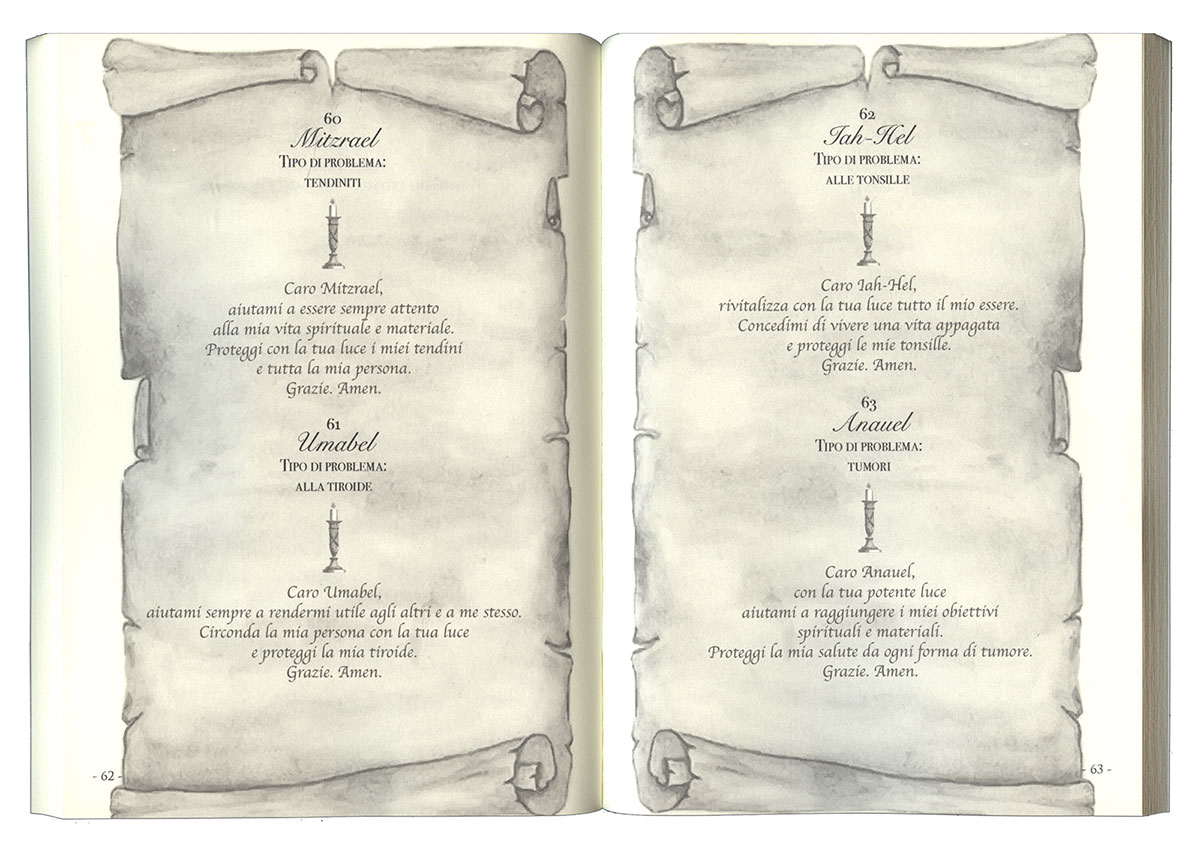 60
Mitzrael
Tipo di problema:
tendiniti
Caro Mitzrael,
aiutami a essere sempre attento
alla mia vita spirituale e materiale.
Proteggi con la tua luce i miei tendini
e tutta la mia persona.
Grazie. Amen.
61
Umabel
Tipo di problema:
alla tiroide
Caro Umabel,
aiutami sempre a rendermi utile agli altri e a me stesso.
Circonda la mia persona con la tua luce
e proteggi la mia tiroide.
Grazie. Amen.
- 62 -
62
Iah-Hel
Tipo di problema:
alle tonsille
Caro Iah-Hel,
rivitalizza con la tua luce tutto il mio essere.
Concedimi di vivere una vita appagata
e proteggi le mie tonsille.
Grazie. Amen.
63
Anauel
Tipo di problema:
tumori
Caro Anauel,
con la tua potente luce
aiutami a raggiungere i miei obiettivi
spirituali e materiali.
Proteggi la mia salute da ogni forma di tumore.
Grazie. Amen.
- 63 -